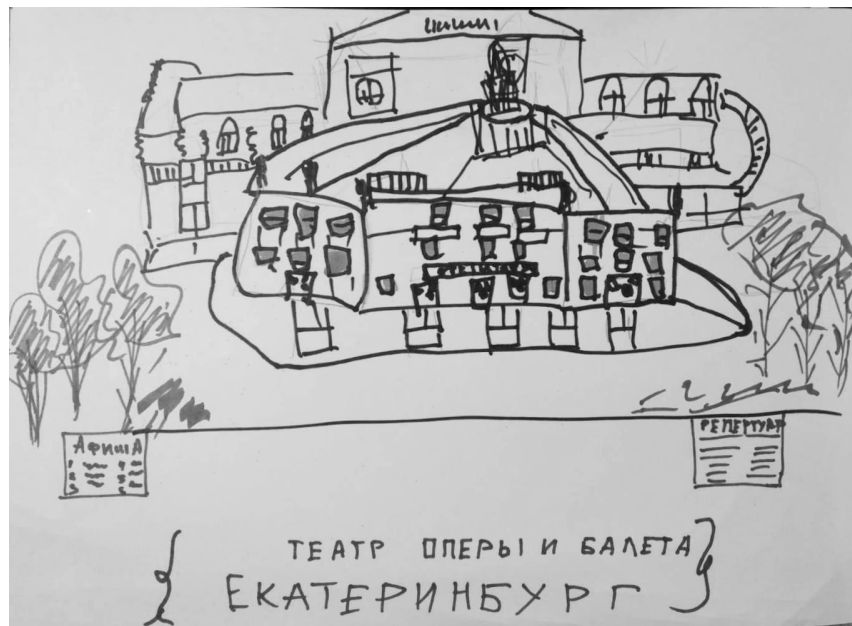 АФИША
РЕПЕРТУАР
ТЕАТР ОПЕРЫ И БАЛЕТА
ЕКАТЕРИНБУРГ